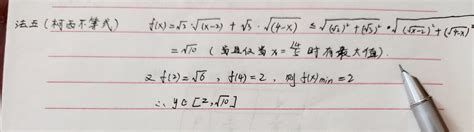 法五(柯西不等式) f(x)=√3·√(x-2) + √3·√(4-x) ≤ √((√2)²+(√3)²)·√((√x-2)²+(√4-x)²
=√10 (当且仅当 x=14/5 时有最大值).
又 f(2)=√6, f(4)=2, 则 f(x)min=2
∴ y∈[2,√10]